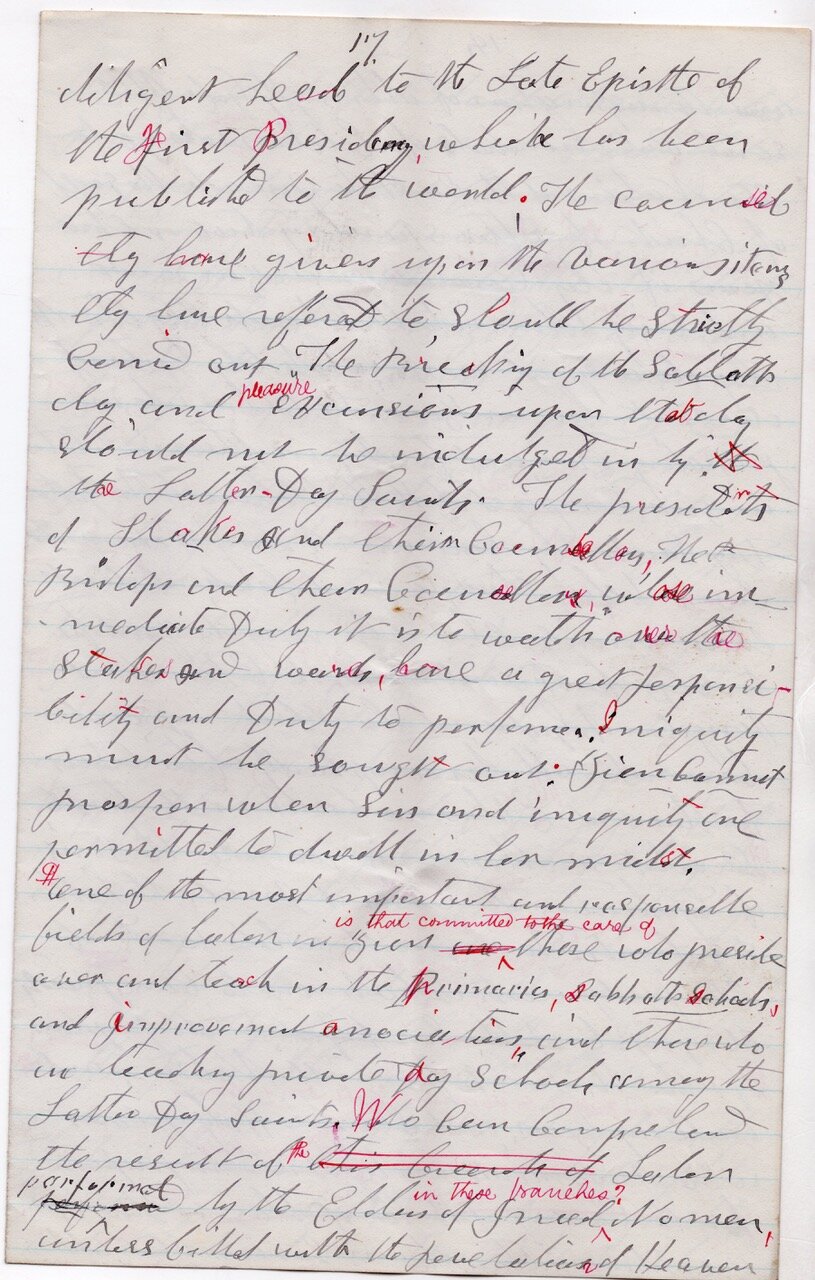 17
diligent heed to the Late Epistle of
the First Presidency, which has been
published to the world. The counsel
they have given upon the various items
they have refered to should be strictly
carried out. The Breaking of the Sabbath
day and pleasure Excursions upon that day
should not be indulged in by
the Latter-Day Saints. The presidents
of Stakes and their Councellors, The
Bishops and their Councellors, whose im-
mediate Duty it is to watch over the
Stakes and wards, have a great responsi-
bility and Duty to perform. Iniquity
must be sought out. Zion Cannot
prosper when sin and iniquity are
permitted to dwell in her midst.
¶ one of the most important and responsible
is that committed to the care of
fields of labor in Zion are those who preside
over and teach in the Primaries, Sabbath Schools,
and improvement associations, and those who
are teaching private day schools among the
Latter Day Saints. Who can Comprehend
the result of the this branch of Labor
performed in these branches?
by the Elders of Israel No men,
unless filled with the revelations of Heaven